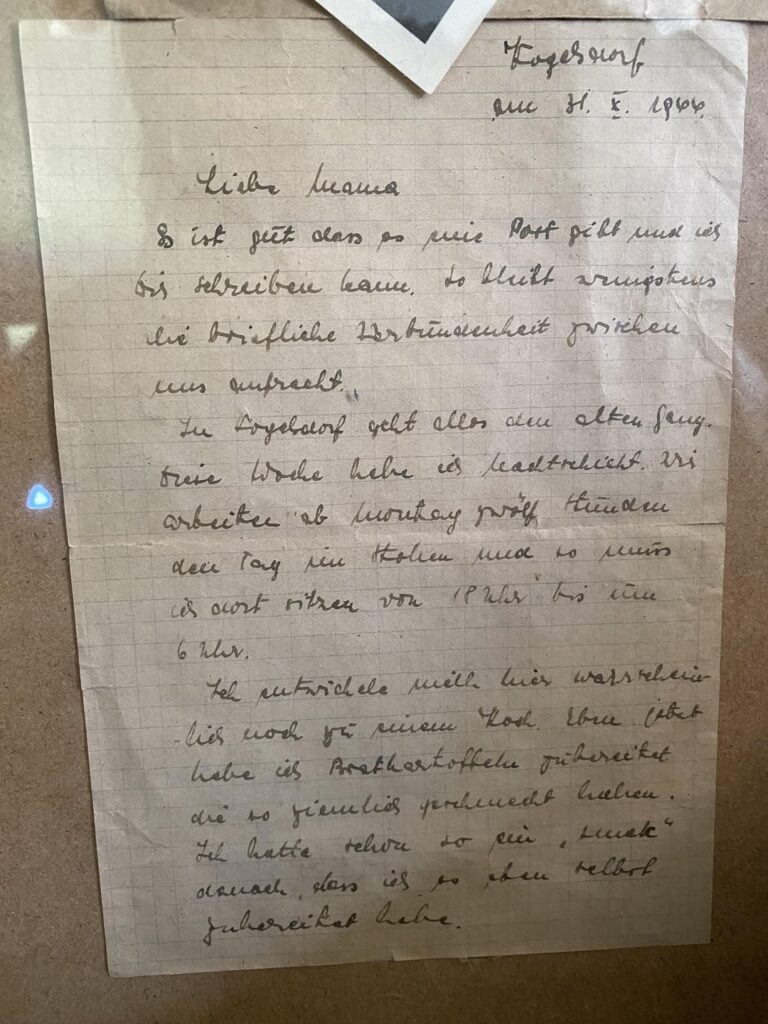 Kogelsdorf
am 31. X. 1944.
Liebe Mama
Es ist gut dass es eine Post gibt und ich
dir schreiben kann. So bleibt wenigstens
die briefliche Verbundenheit zwischen
uns aufrecht.
In Kogelsdorf geht alles den alten Gang.
Diese Woche habe ich Nachtschicht. Wir
arbeiten ab Montag zwölf Stunden
den Tag im Stolen und so muss
ich dort sitzen von 18 Uhr bis um
6 Uhr.
Ich entwickele mich hier warschein-
-lich noch zu einem Koch. Eben jetzt
habe ich Bratkartoffeln zubereitet
die so ziemlich geschmeckt haben.
Ich hatte schon so ein „smak"
danach, dass ich es eben selbst
zubereitet habe.